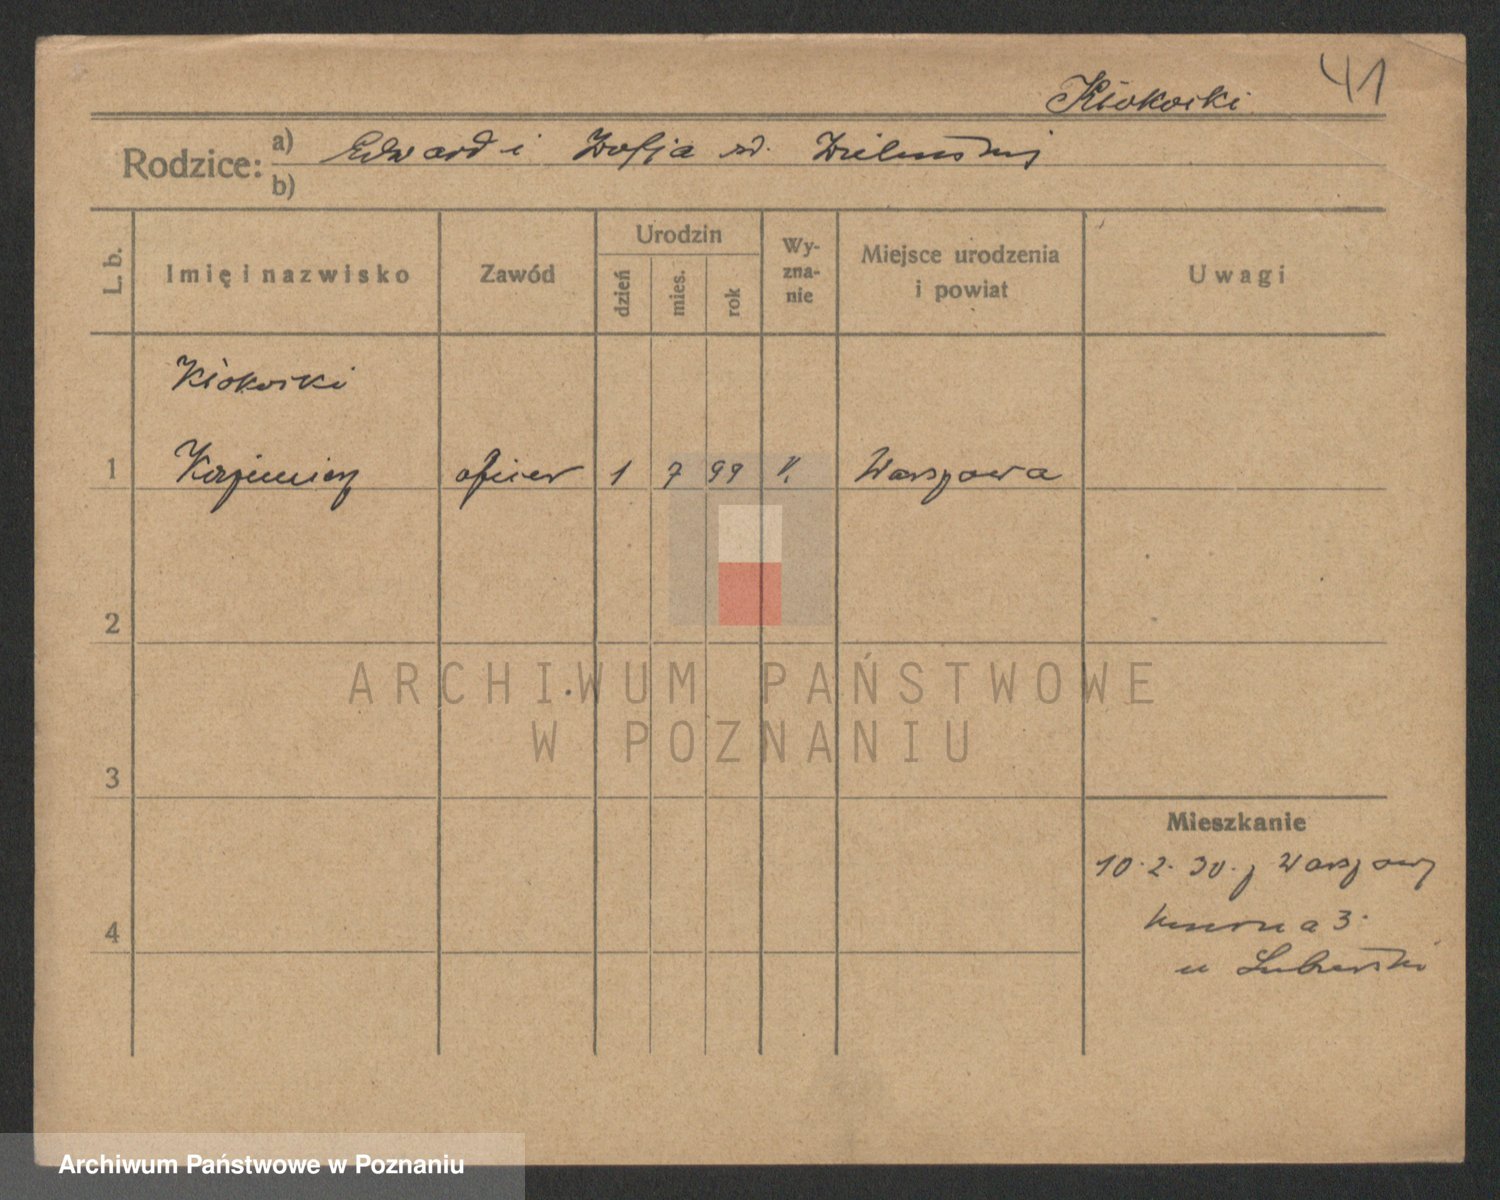 41
Kłokocki
Rodzice:
a) Edward i Zofja zd. Zieliński
b)
L. b.
Imię i nazwisko
Zawód
Urodzin
dzień
mies.
rok
Wy-
zna-
nie
Miejsce urodzenia
i powiat
Uwagi
Kłokocki
1 Kazimierz oficer 1 7 99 k. Warszawa
2
3
4
Mieszkanie
10.2.30. z Warszawy
3.
u
ARCHIWUM PAŃSTWOWE
W POZNANIU
Archiwum Państwowe w Poznaniu